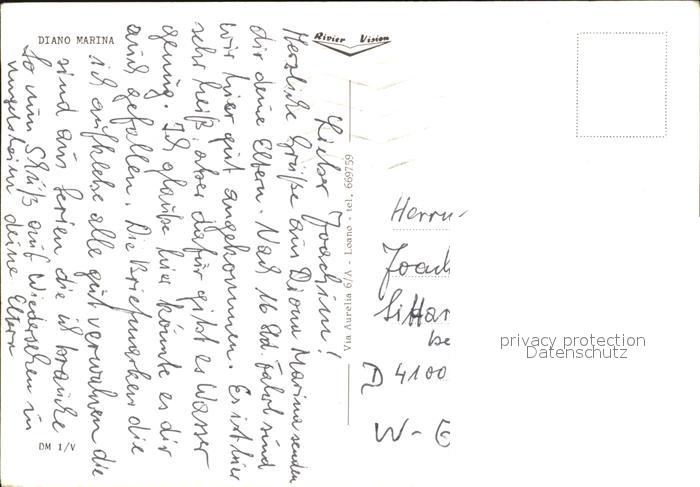 DIANO MARINA
Rivier Vision
Lieber Joachim!
Herzliche Grüße aus Diana Marina senden
dir deine Eltern. Nach 16 Std. Fahrt sind
wir hier gut angekommen. Es ist hier
sehr heiß, aber dafür gibt es Wasser
genug. Ich glaube hier könnte es dir
auch gefallen. Die Briefmarken die
ich aufklebe alle gut verwahren die
sind aus Ferien die ich brauche
So nun Schluß auf Wiedersehen in
deine Eltern
Via Aurelia 6/A - Loano - tel. 669759
Herrn
Joach
Sittar
be
D 4100
W-
privacy protection
Datenschutz
DM 1/V